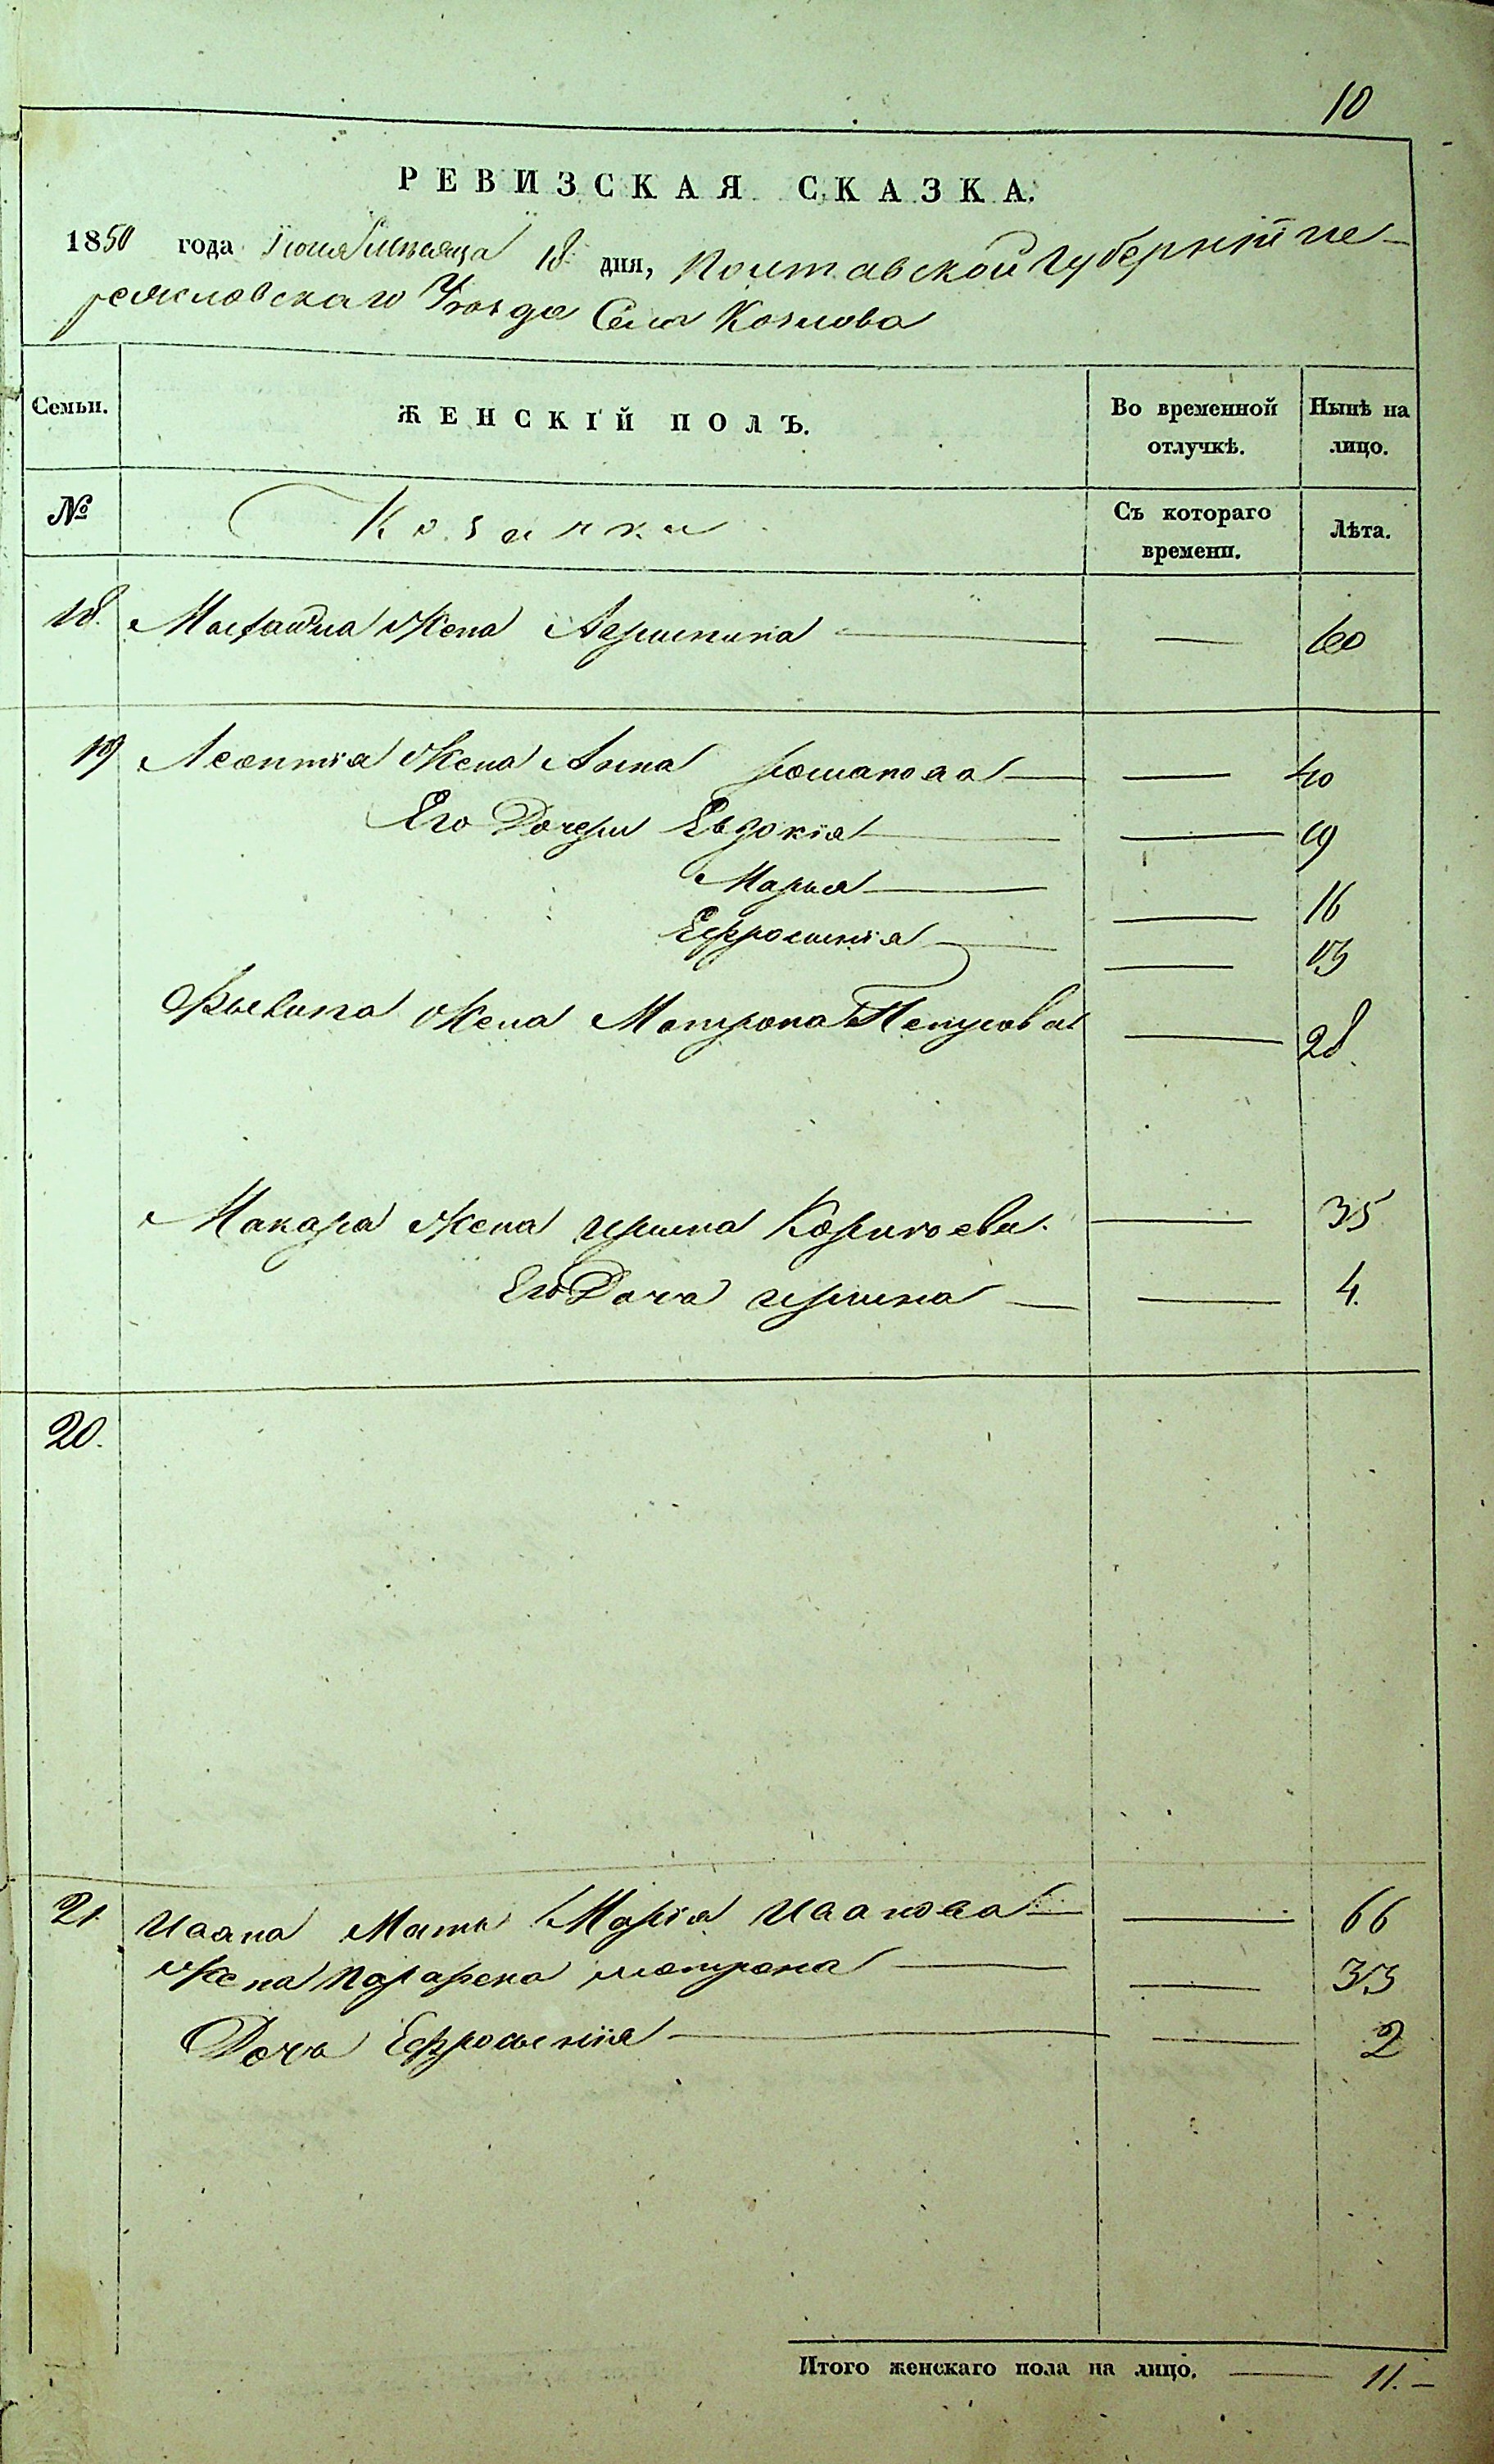 10
РЕВИЗСКАЯ СКАЗКА.
1850 года Іюня мѣсяца 18 дня, Полтавской губерніи Пе-
реяславскаго Уѣзда Села Козлова
Семьи. ЖЕНСКІЙ ПОЛЪ. Во временной отлучкѣ. Нынѣ на лицо.
№ Козачки Съ котораго времени. Лѣта.
18. жена — — 60
19 Леонтія жена Анна Романова — — 40
Его Дочери Евдокія — — 19
Марья — — 16
Ефросинія — — 13
жена Матрона Петрова — 28.
Макара жена Ирина Корнѣева. — 35
Его Доча Ирина — — 4.
20.
21. Ивана Мать Марія Иванова — — 66
Жена Матрона — — 33
Доча Ефросинія — — 2
Итого женскаго пола на лицо. — 11. —